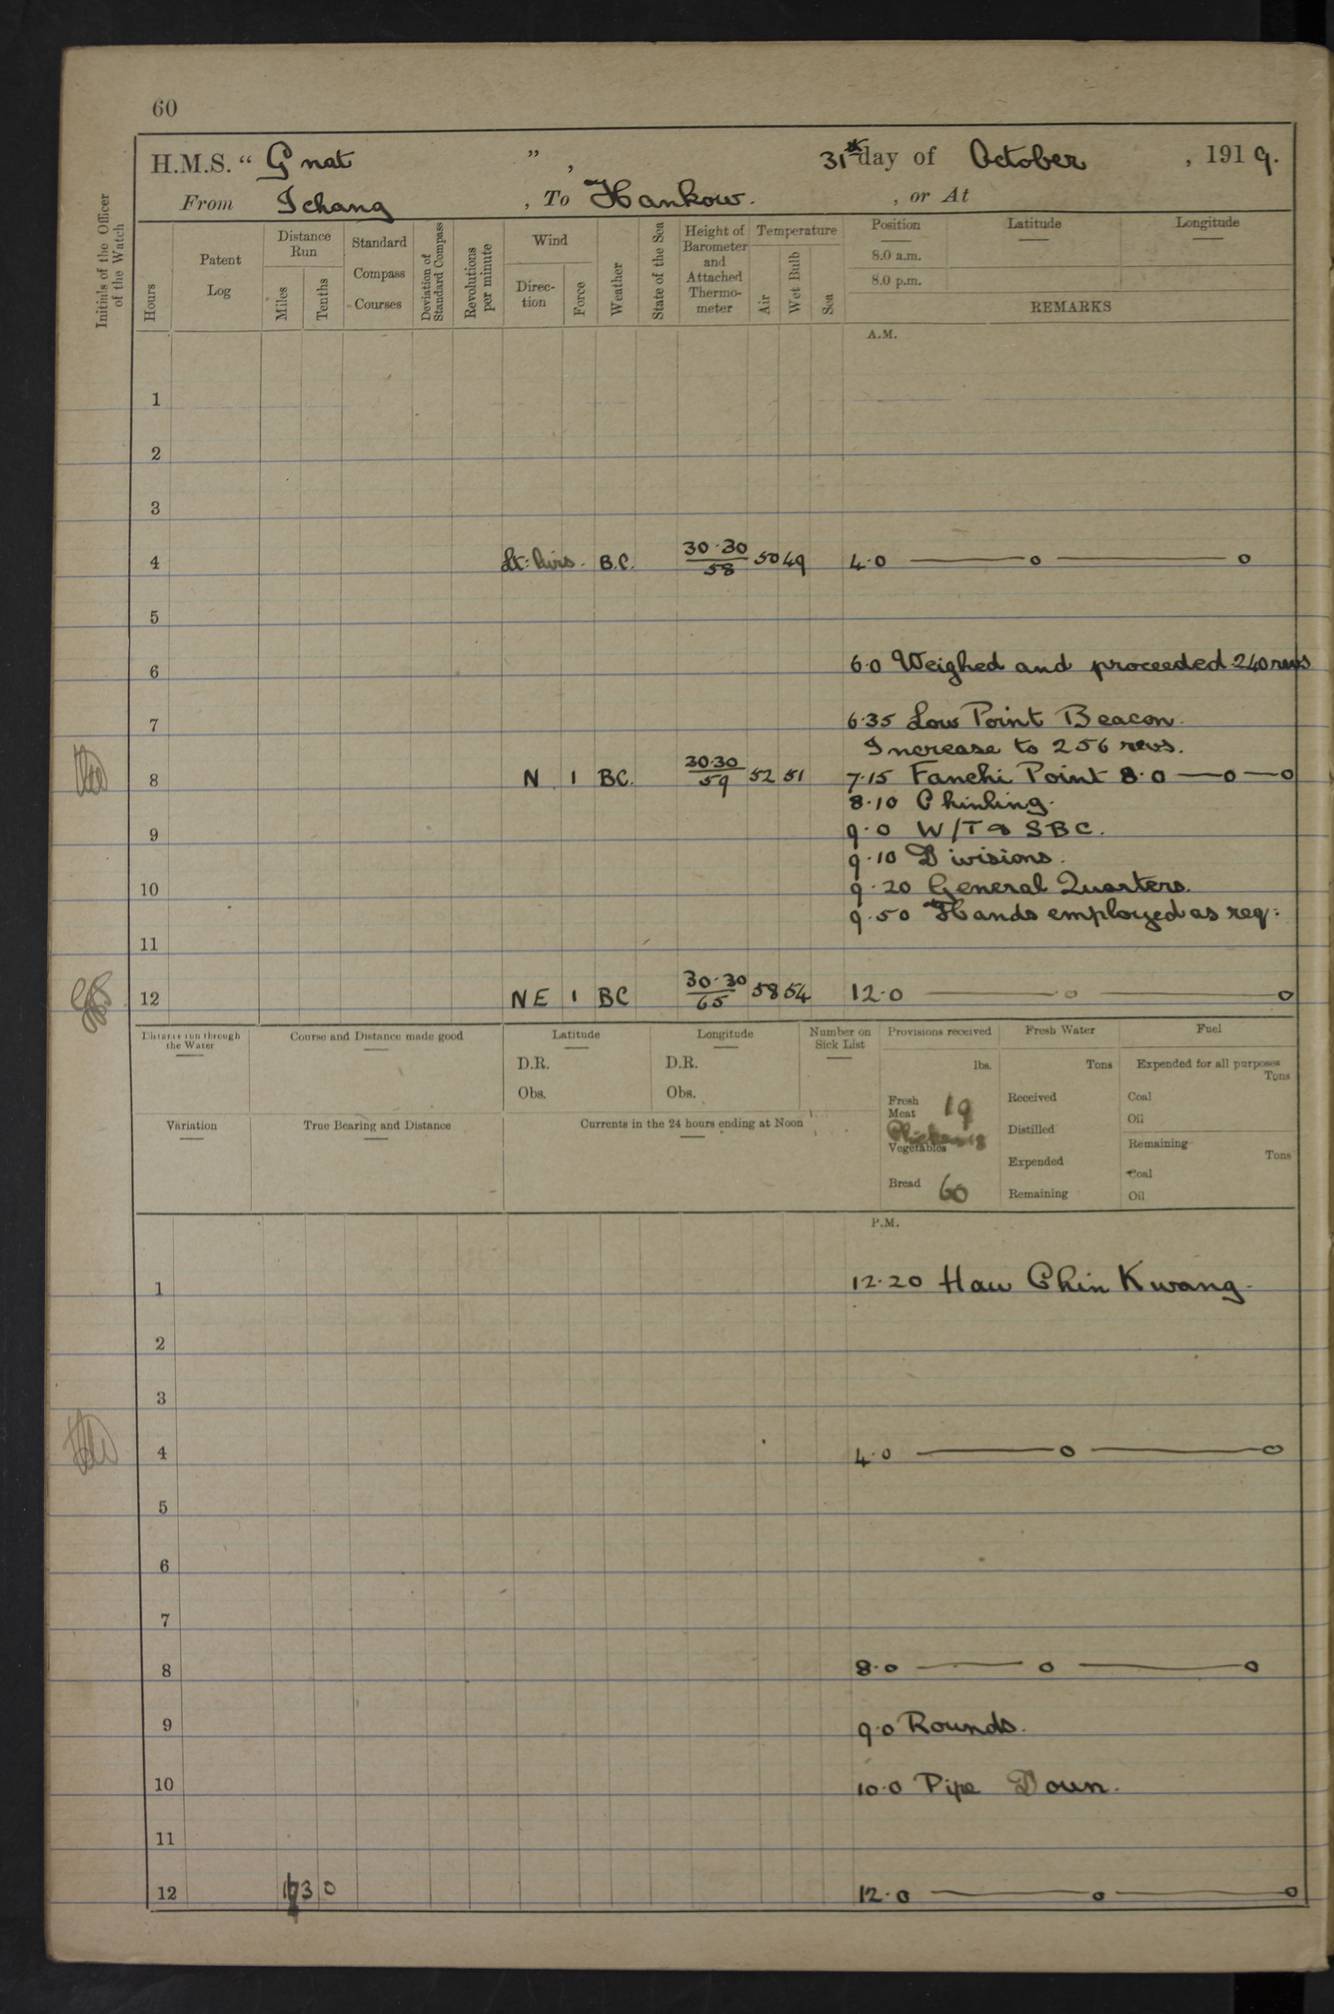 60
H.M.S. “ Gnat ” , 31st day of October , 1919.
From Ichang , To Hankow. , or At
Initials of the Officer of the Watch
Hours
Patent Log
Distance Run
Miles
Tenths
Standard Compass Courses
Deviation of Standard Compass
Revolutions per minute
Wind
Direction
Force
Weather
State of the Sea
Height of Barometer and Attached Thermometer
Temperature
Air
Wet Bulb
Sea
Position
Latitude
Longitude
8.0 a.m.
8.0 p.m.
REMARKS
A.M.
1
2
3
4 Lt: Airs. B.C. 30·30/58 50 49 4·0 —o—o
5
6 6·0 Weighed and proceeded 240 revs
7 6·35 Low Point Beacon.
Increase to 256 revs.
8 N 1 BC. 30·30/59 52 51 7·15 Fanchi Point 8·0 —o—o
8·10 Chinling.
9 9·0 W/T & SBC.
9·10 Divisions.
10 9·20 General Quarters.
9·50 Hands employed as req:
11
12 NE 1 BC 30·30/65 58 54 12·0 —o—o
Distance run through the Water
Course and Distance made good
Latitude
D.R.
Obs.
Longitude
D.R.
Obs.
Number on Sick List
Provisions received
lbs.
Fresh Meat 19
Vegetables
Bread 60
Fresh Water
Tons
Received
Distilled
Expended
Remaining
Fuel
Expended for all purposes
Tons
Coal
Oil
Remaining
Tons
Coal
Oil
Variation
True Bearing and Distance
Currents in the 24 hours ending at Noon
P.M.
1 12·20 Hau Chin Kwang.
2
3
4 4·0 —o—o
5
6
7
8 8·0 —o—o
9 9·0 Rounds.
10 10·0 Pipe Down.
11
12 30 12·0 —o—o